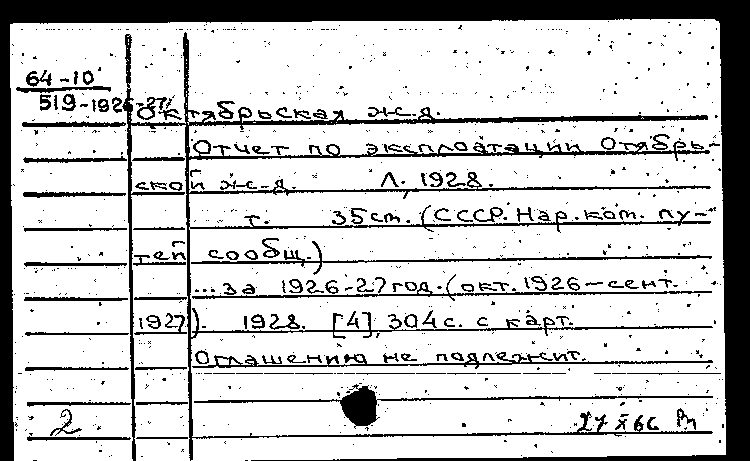 64-10
519-1926-27/
Октябрьская ж.д.
Отчет по эксплоатации Отябрь-
ской ж.-д. Л., 1928.
т. 35cm. (СССР. Нар. ком. пу-
тей сообщ.)
...за 1926-27 год. (окт. 1926-сент.
1927). 1928. [4], 304 с. с карт.
Оглашению не подлежит.
2 27 X 66